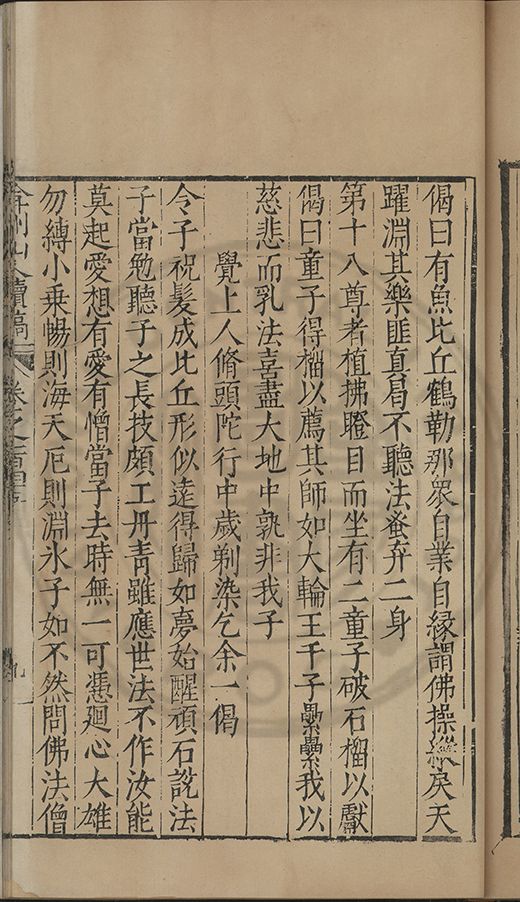 偈曰有魚比丘鶴勒那衆自業自緣謂佛操縱戾天
躍淵其樂匪真曷不聽法蚤弃二身
第十八尊者植拂瞪目而坐有二童子破石榴以獻
偈曰童子得榴以薦其師如大輪王千子纍纍我以
慈悲而乳法喜盡大地中孰非我子
覺上人脩頭陀行中歲剃染乞余一偈
令子祝髮成比丘形似遠得歸如夢始醒頑石說法
子當勉聽子之長技頗工丹青雖應世法不作汝能
莫起愛想有愛有憎當子去時無一可憑廻心大雄
勿縛小乗暢則海天厄則淵氷子如不然問佛法僧
弇州山人續稿 卷之一百四十